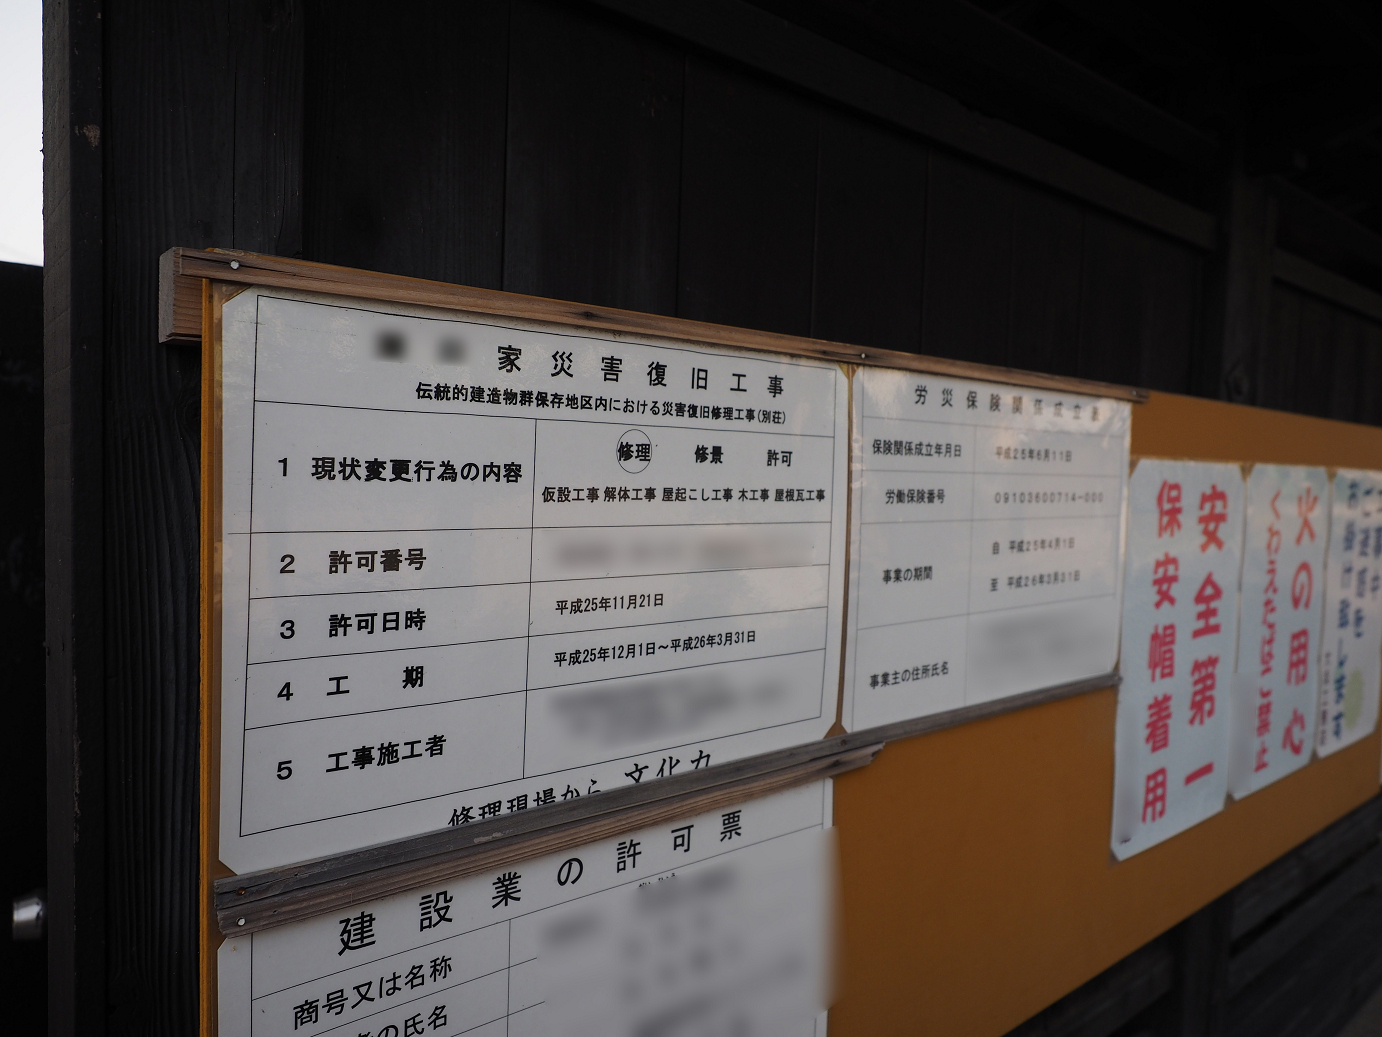 家災害復旧工事
伝統的建造物群保存地区内における災害復旧修理工事(別荘)
1 現状変更行為の内容
修理 修景 許可
仮設工事 解体工事 屋起こし工事 木工事 屋根瓦工事
2 許可番号
3 許可日時
平成25年11月21日
4 工期
平成25年12月1日～平成26年3月31日
5 工事施工者
修理現場から 文化力
労災保険関係成立票
保険関係成立年月日
平成25年6月11日
労働保険番号
09103600714-000
事業の期間
自 平成25年4月1日
至 平成26年3月31日
事業主の住所氏名
建設業の許可票
商号又は名称
の氏名
安全第一
保安帽着用
火の用心
くわえたばこ禁止